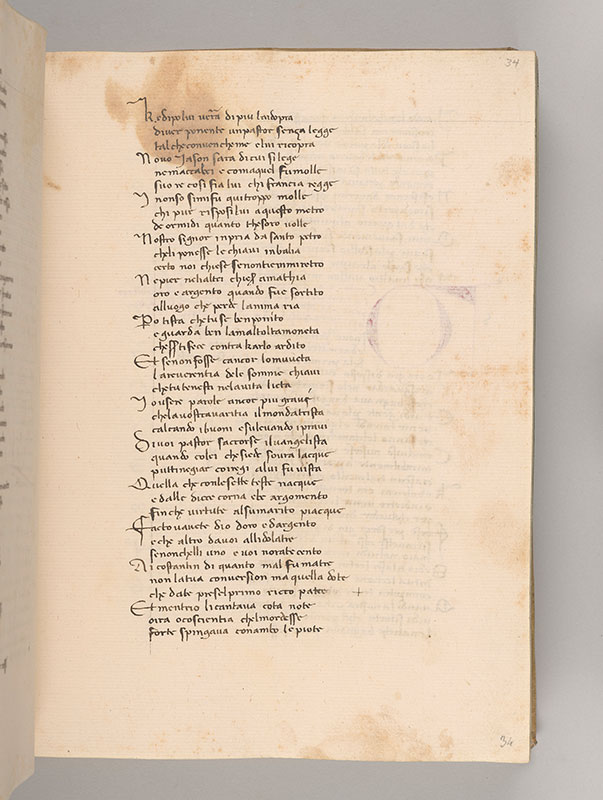 34
Ke dipo lui verà di piu laidopra
diver ponente unpastor sença legge
tal che convenche me elui ricopra
Novo Jason sara dicui si lege
nemaccabei e comaquel fu molle
suo re cosi fia lui chi francia regge
I nonso simifu quitroppo molle
chi pur risposi lui aquesto metro
de ormidi quanto thesoro volle
Nostro signor inpria da santo petro
cheli ponesse le chiavi inbalia
certo noi chiese senonvienmiretro
Ne pier nelialtri chies amathia
oro e argento quando fue sortito
alluogo che perde lanima ria
Po tista chetuse benponito
e guarda ben lamaltoltamoneta
chessti fece contra karlo ardito
Et senonfosse cancor lomivieta
lareverentia dele somme chiavi
chetu tenesti nelavita lieta
Io usere parole ancor piu gravi
chelavostravaritia il mondatrista
calcando ibuoni e sulevando ipravi
Di voi pastor saccorse il vangelista
quando colei chesiede sovra lacque
puttinegiar coi regi alui fu vista
Quella che conlesette teste nacque
e dalle diece corna ebe argomento
finche virtute alsumarito piacque
Facto vavete dio doro e dargento
e che altro da voi allidolatre
senonchelli uno e voi norate cento
Ai costantin di quanto mal fu matre
non latua conversion ma quella dote
che date prese lprimo ricco patre
Et mentrio li cantava cota note
oira o coscientia chelmordesse
forte spingava conambo le piote
34